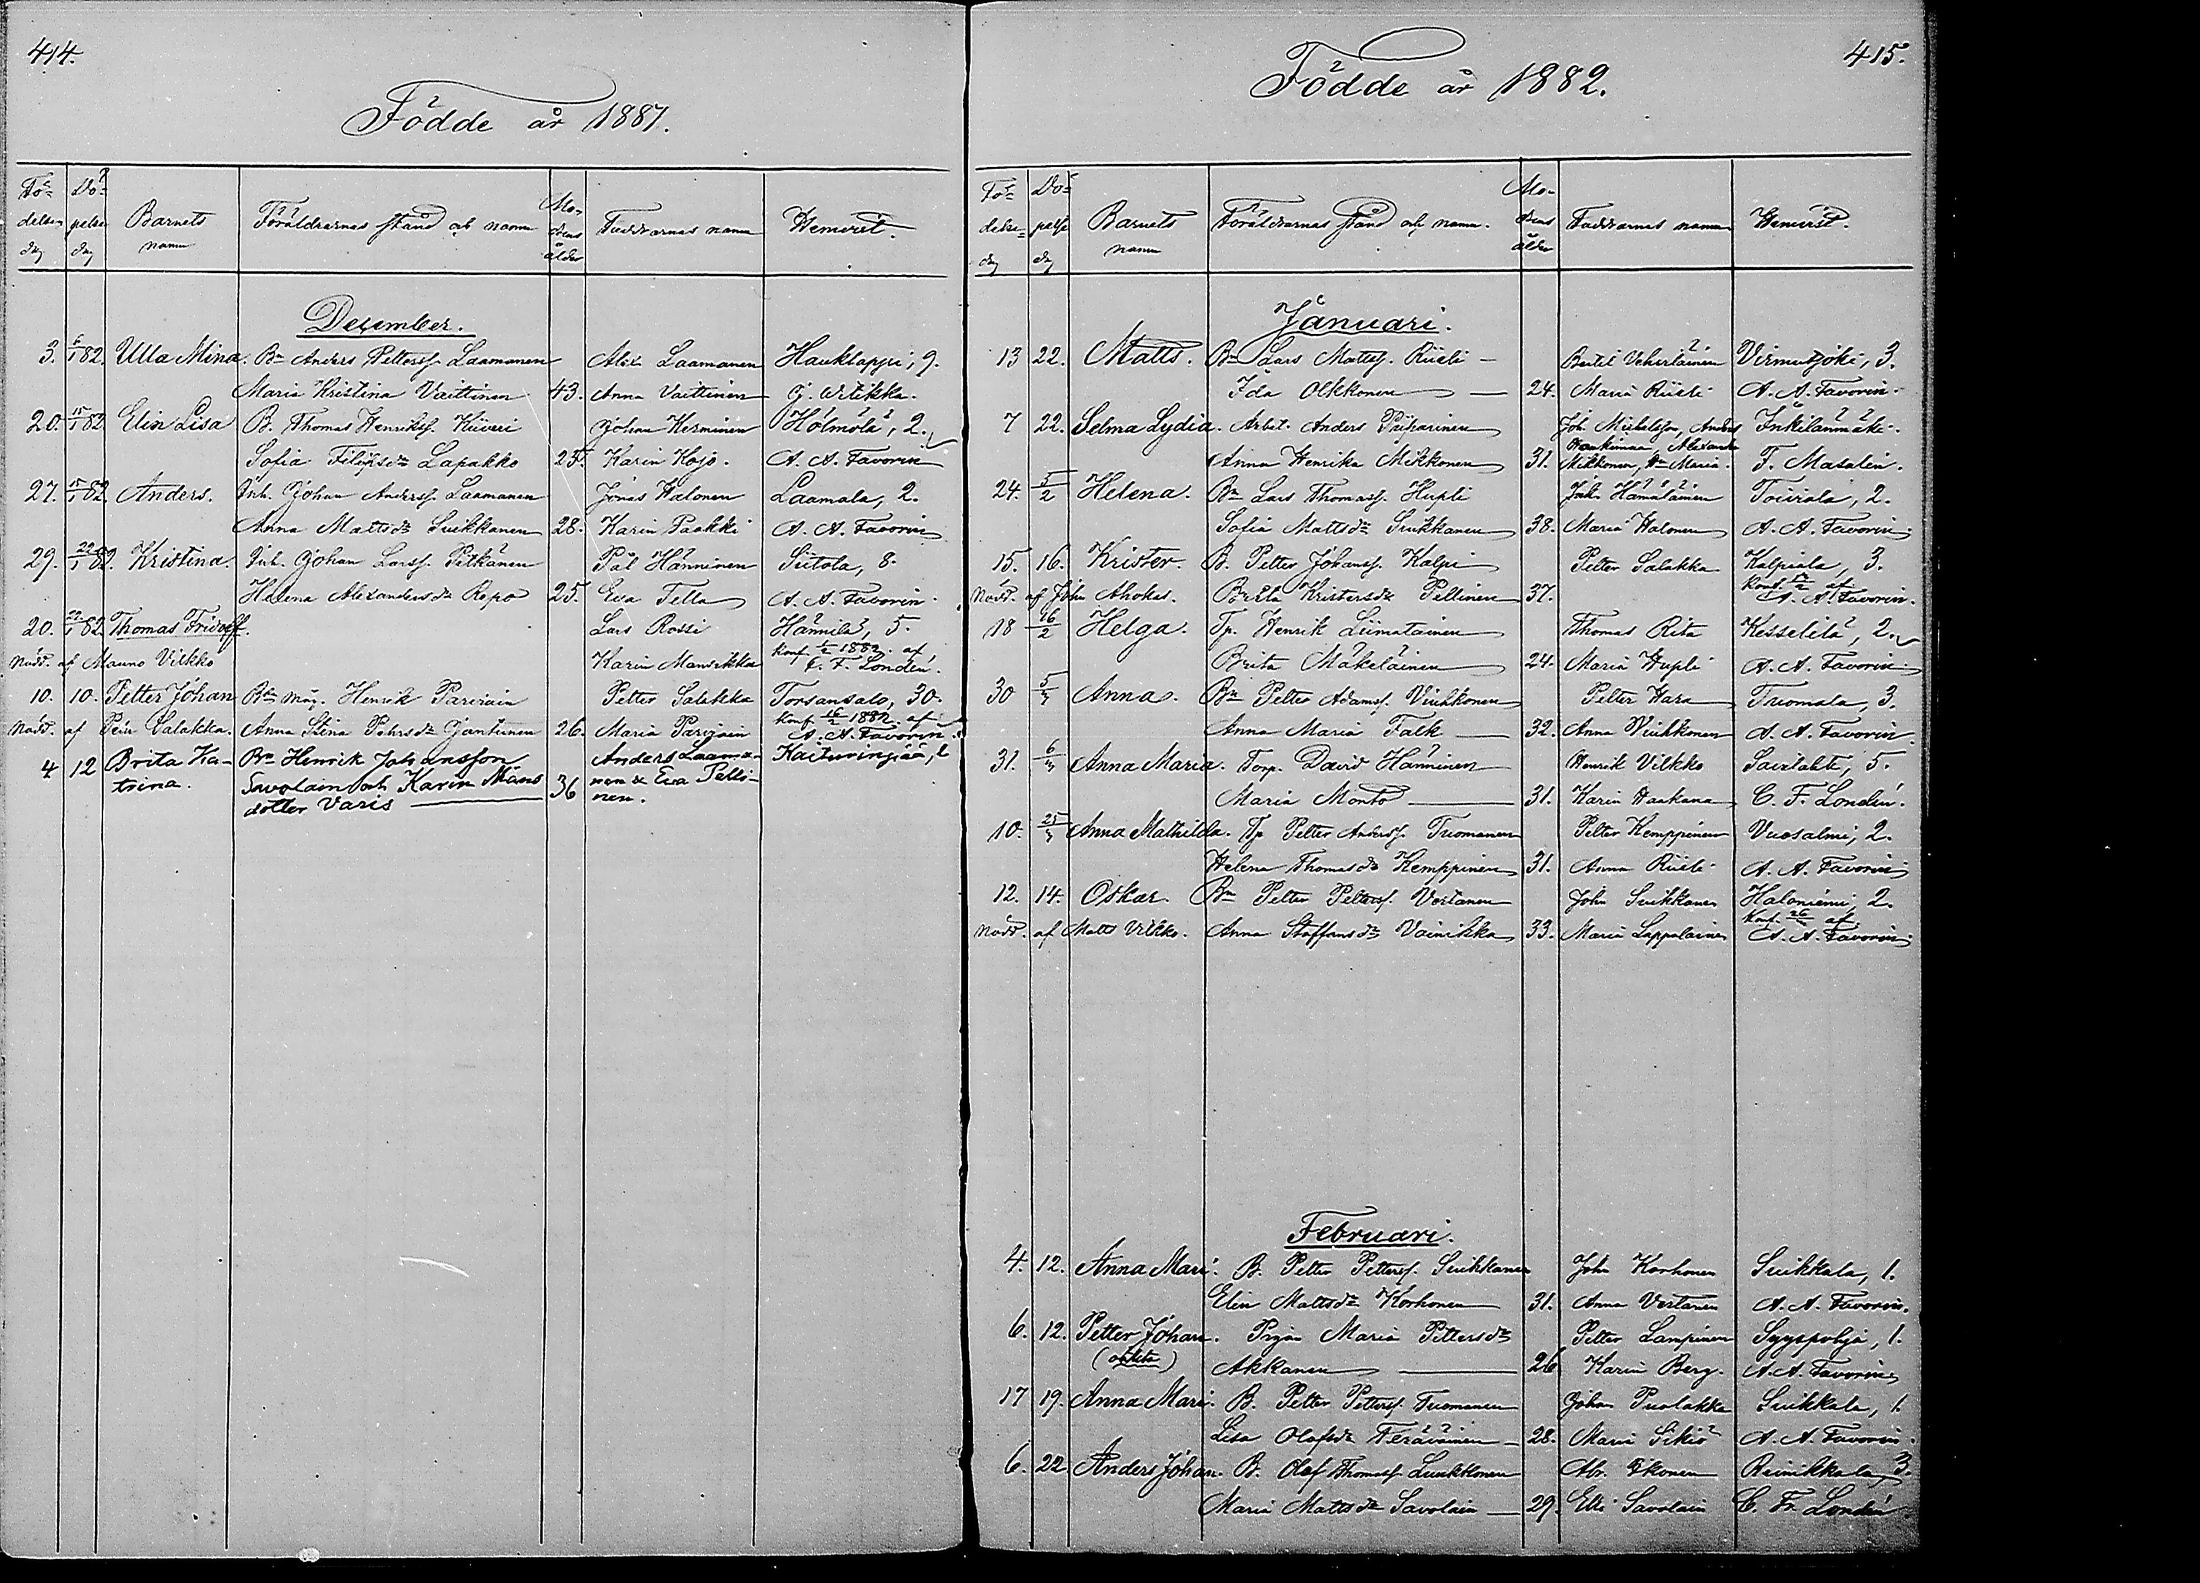 414.
Födde år 1881.
Fö- delse dag
Dö- pelse dag
Barnets namn
Föräldrarnas stånd och namn
Mo- drens ålder
Faddrarnas namn
Hemvist.
December.
3. 6/1 82. Ulla Mina. Bn Anders Pettersf. Laamanen Laamanen 9.
Maria Kristina Vaittinen 43. Anna Vaittinen
20. 15/1 82 Elin Lisa B. Thomas Henriksf. Kiiveri Johan Kerminen Hölmölä, 2.
Sofia Lapakko 25. Karin Kojo. A. A. Favorin
27. 15/1 82. Anders. Inh. Johan Andersf. Laamanen Jonas Halonen Laamala, 2.
Anna Mattsdr Suikkanen 28. Karin Paakki A. A. Favorin
29. 22/1 82. Kristina. Inh. Johan Larsf. Pitkänen Pål Hänninen Siitola, 8.
Helena Alexandersdr Repo 25. Eva Tella A. A. Favorin.
20. 22/1 82. Thomas Fridolf. Lars Rossi Hännilä, 5.
Nödd. af Mauno Vilkko Karin Mansikka Konf. 1/2 1882. af C. F. Londén.
10. 10. Petter Johan Henrik Parviain Petter Salakka Torsansalo, 30.
Nödd. af Petter Salakka. Anna Stina Pehrsdr Jantunen 26. Maria Parviain Konf. 16/2 1882. af A. A. Favorin.
4 12 Brita Ka- Bn Henrik Johansson Anders Laama-
trina. Savolain och Karin Måns 36 nen & Eva Pelli-
dotter Varis nen.
415.
Födde år 1882.
Fö- delse- dag
Dö- pelse dag
Barnets namn
Föräldrarnas stånd och namn.
Mo- drens ålder
Faddrarnas namn
Hemvist.
Januari.
13 22. Matts. Bn Lars Mattsf. Riieli Virmutjoki, 3.
Ida Olkkonen 24. Maria Riieli A. A. Favorin.
7 22. Selma Lydia. Arbet. Anders Joh. Michelsson, Anders
Anna Henrika Mikkonen 31. Mikkonen, Maria. F. Masalin.
24. 5/2 Helena. Bn Lars Thomasf. Hupli Joh. Hämäläinen Touriala, 2.
Sofia Mattsdr Suikkanen 38. Maria Halonen A. A. Favorin
15. 16. Krister. B. Petter Johansf. Kalpi Petter Salakka Kalpiala, 3.
Nödd. af John Ahokas. Brita Kristersdr Pellinen 37. A. A. Favorin.
18 26/2 Helga. Tp. Henrik Liimatainen Thomas Rita Kesselilä, 2.
Brita Mäkeläinen 24. Maria Hupli A. A. Favorin.
30 Anna. Bn Petter Adamsf. Viuhkonen Petter Hara Tuomala, 3.
Anna Maria Falk 32. Anna Viuhkonen A. A. Favorin.
31. Anna Maria. Torp. David Hänninen Henrik Vilkko Savilahti, 5.
Maria Monto 31. Karin Haakana C. F. Londén.
10. Anna Mathilda. Tp Petter Andersf. Tuomanen Petter Kemppinen Vuosalmi, 2.
Helena Thomasdr Kemppinen 31. Anna Riieli A. A. Favorin
12. 14. Oskar. Bn Petter Pettersf. Vertanen John Suikkanen Haloniemi, 2.
Nödd. af Matts Vilkko. Anna Staffansdr Vainikka 33. Maria Lappalainen Konf. af A. A. Favorin
Februari.
4. 12. Anna Mari. B. Petter Pettersf. Suikkanen John Korhonen Suikkala, 1.
Elin Mattsdr Korhonen 31. Anna Vertanen A. A. Favorin.
6. 12. Petter Johan. Maria Pettersdr Petter Lampinen Syyspohja, 1.
Akkanen 26 Karin Berg. A. A. Favorin
17 19. Anna Mari. B. Petter Pettersf. Tuomanen Johan Puolakka Suikkala, 1.
Lisa Olofsdr Teräväinen 28. Maria Sikiö A. A. Favorin.
6. 22 Anders Johan. B. Olof Thomasf. Luukkonen Abr. Ikonen Reinikkala, 3.
Maria Mattsdr Savolain 29. Elli Savolain C. Fr. Londén